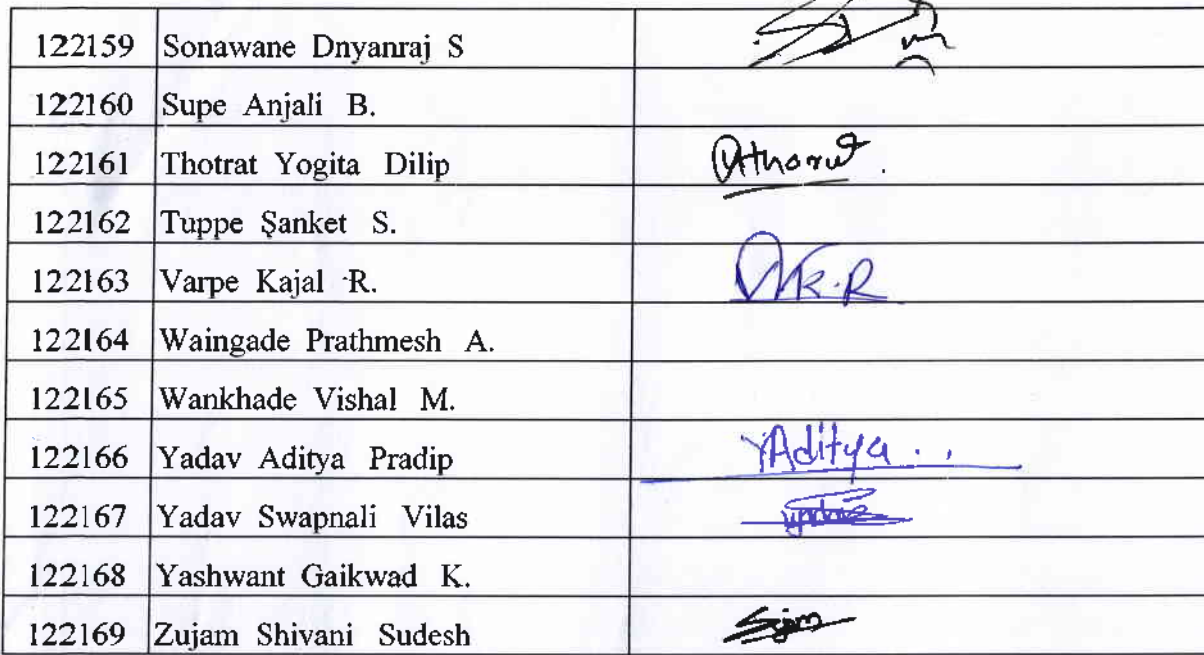 122159 Sonawane Dnyanraj S
122160 Supe Anjali B.
122161 Thotrat Yogita Dilip
122162 Tuppe Sanket S.
122163 Varpe Kajal R. K.R
122164 Waingade Prathmesh A.
122165 Wankhade Vishal M.
122166 Yadav Aditya Pradip YAditya..
122167 Yadav Swapnali Vilas
122168 Yashwant Gaikwad K.
122169 Zujam Shivani Sudesh